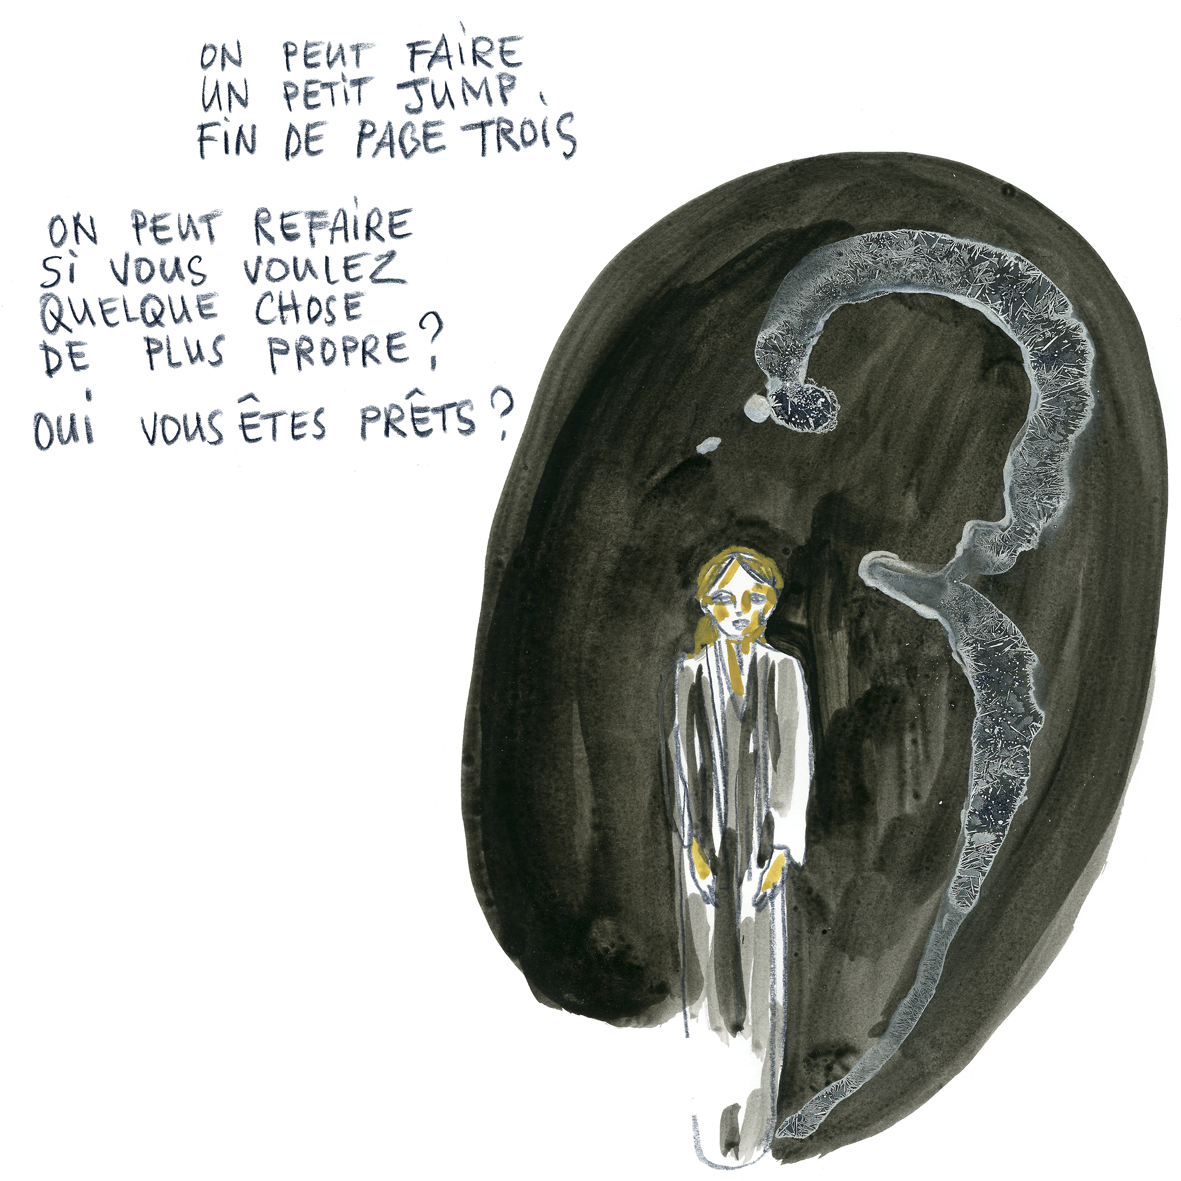 ON PEUT FAIRE
UN PETIT JUMP,
FIN DE PAGE TROIS
ON PEUT REFAIRE
SI VOUS VOULEZ
QUELQUE CHOSE
DE PLUS PROPRE?
OUI VOUS ÊTES PRÊTS?
3